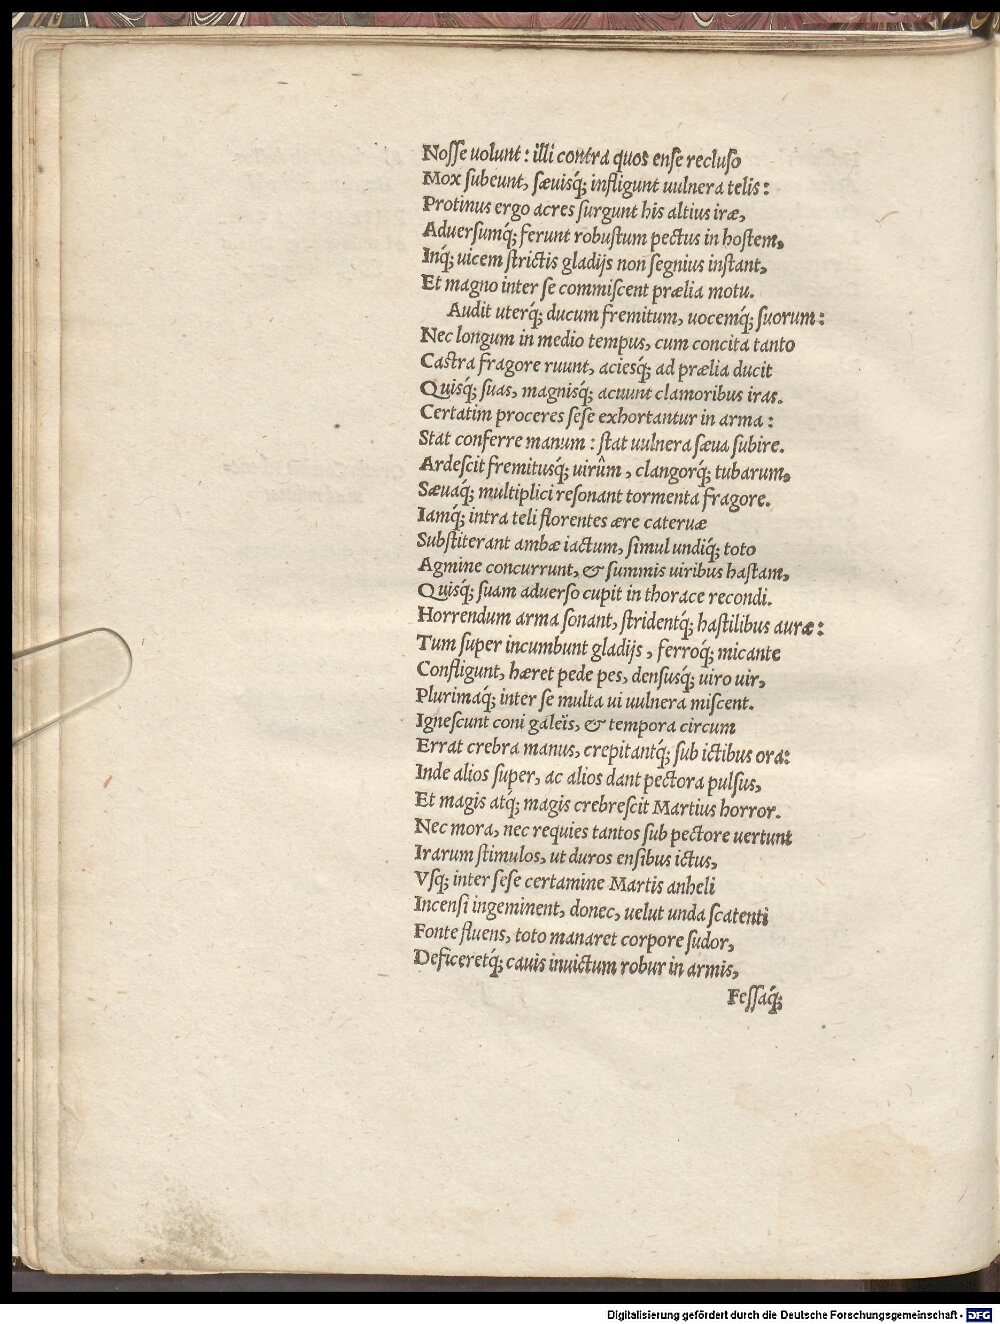 Noſſe uolunt: illi contra quos enſe recluſo
Mox ſubeunt, ſæuisq́; infligunt uulnera telis:
Protinus ergo acres ſurgunt his altius iræ,
Aduerſumq́; ferunt robuſtum pectus in hoſtem,
Inq́; uicem ſtrictis gladijs non ſegnius inſtant,
Et magno inter ſe commiſcent prælia motu.
Audit uterq́; ducum fremitum, uocemq́; ſuorum:
Nec longum in medio tempus, cum concita tanto
Caſtra fragore ruunt, aciesq́; ad prælia ducit
Quisq́; ſuas, magnisq́; acuunt clamoribus iras.
Certatim proceres ſeſe exhortantur in arma:
Stat conferre manum: ſtat uulnera ſæua ſubire.
Ardeſcit fremitusq́; uirûm, clangorq́; tubarum,
Sæuaq́; multiplici reſonant tormenta fragore.
Iamq́; intra teli florentes ære cateruæ
Subſtiterant ambæ iactum, ſimul undiq́; toto
Agmine concurrunt, & ſummis uiribus haſtam,
Quiſq́; ſuam aduerſo cupit in thorace recondi.
Horrendum arma ſonant, ſtridentq́; haſtilibus auræ:
Tum ſuper incumbunt gladijs, ferroq́; micante
Confligunt, hæret pede pes, denſusq́; uiro uir,
Plurimaq́; inter ſe multa ui uulnera miſcent.
Igneſcunt coni galeïs, & tempora circum
Errat crebra manus, crepitantq́; ſub ictibus ora:
Inde alios ſuper, ac alios dant pectora pulſus,
Et magis atq́; magis crebreſcit Martius horror.
Nec mora, nec requies tantos ſub pectore uertunt
Irarum ſtimulos, ut duros enſibus ictus,
Vſq; inter ſeſe certamine Martis anheli
Incenſi ingeminent, donec, uelut unda ſcatenti
Fonte fluens, toto manaret corpore ſudor,
Deficeretq́; cauis inuictum robur in armis,
Feſſaq́;
Digitalisierung gefördert durch die Deutsche Forschungsgemeinschaft - DFG